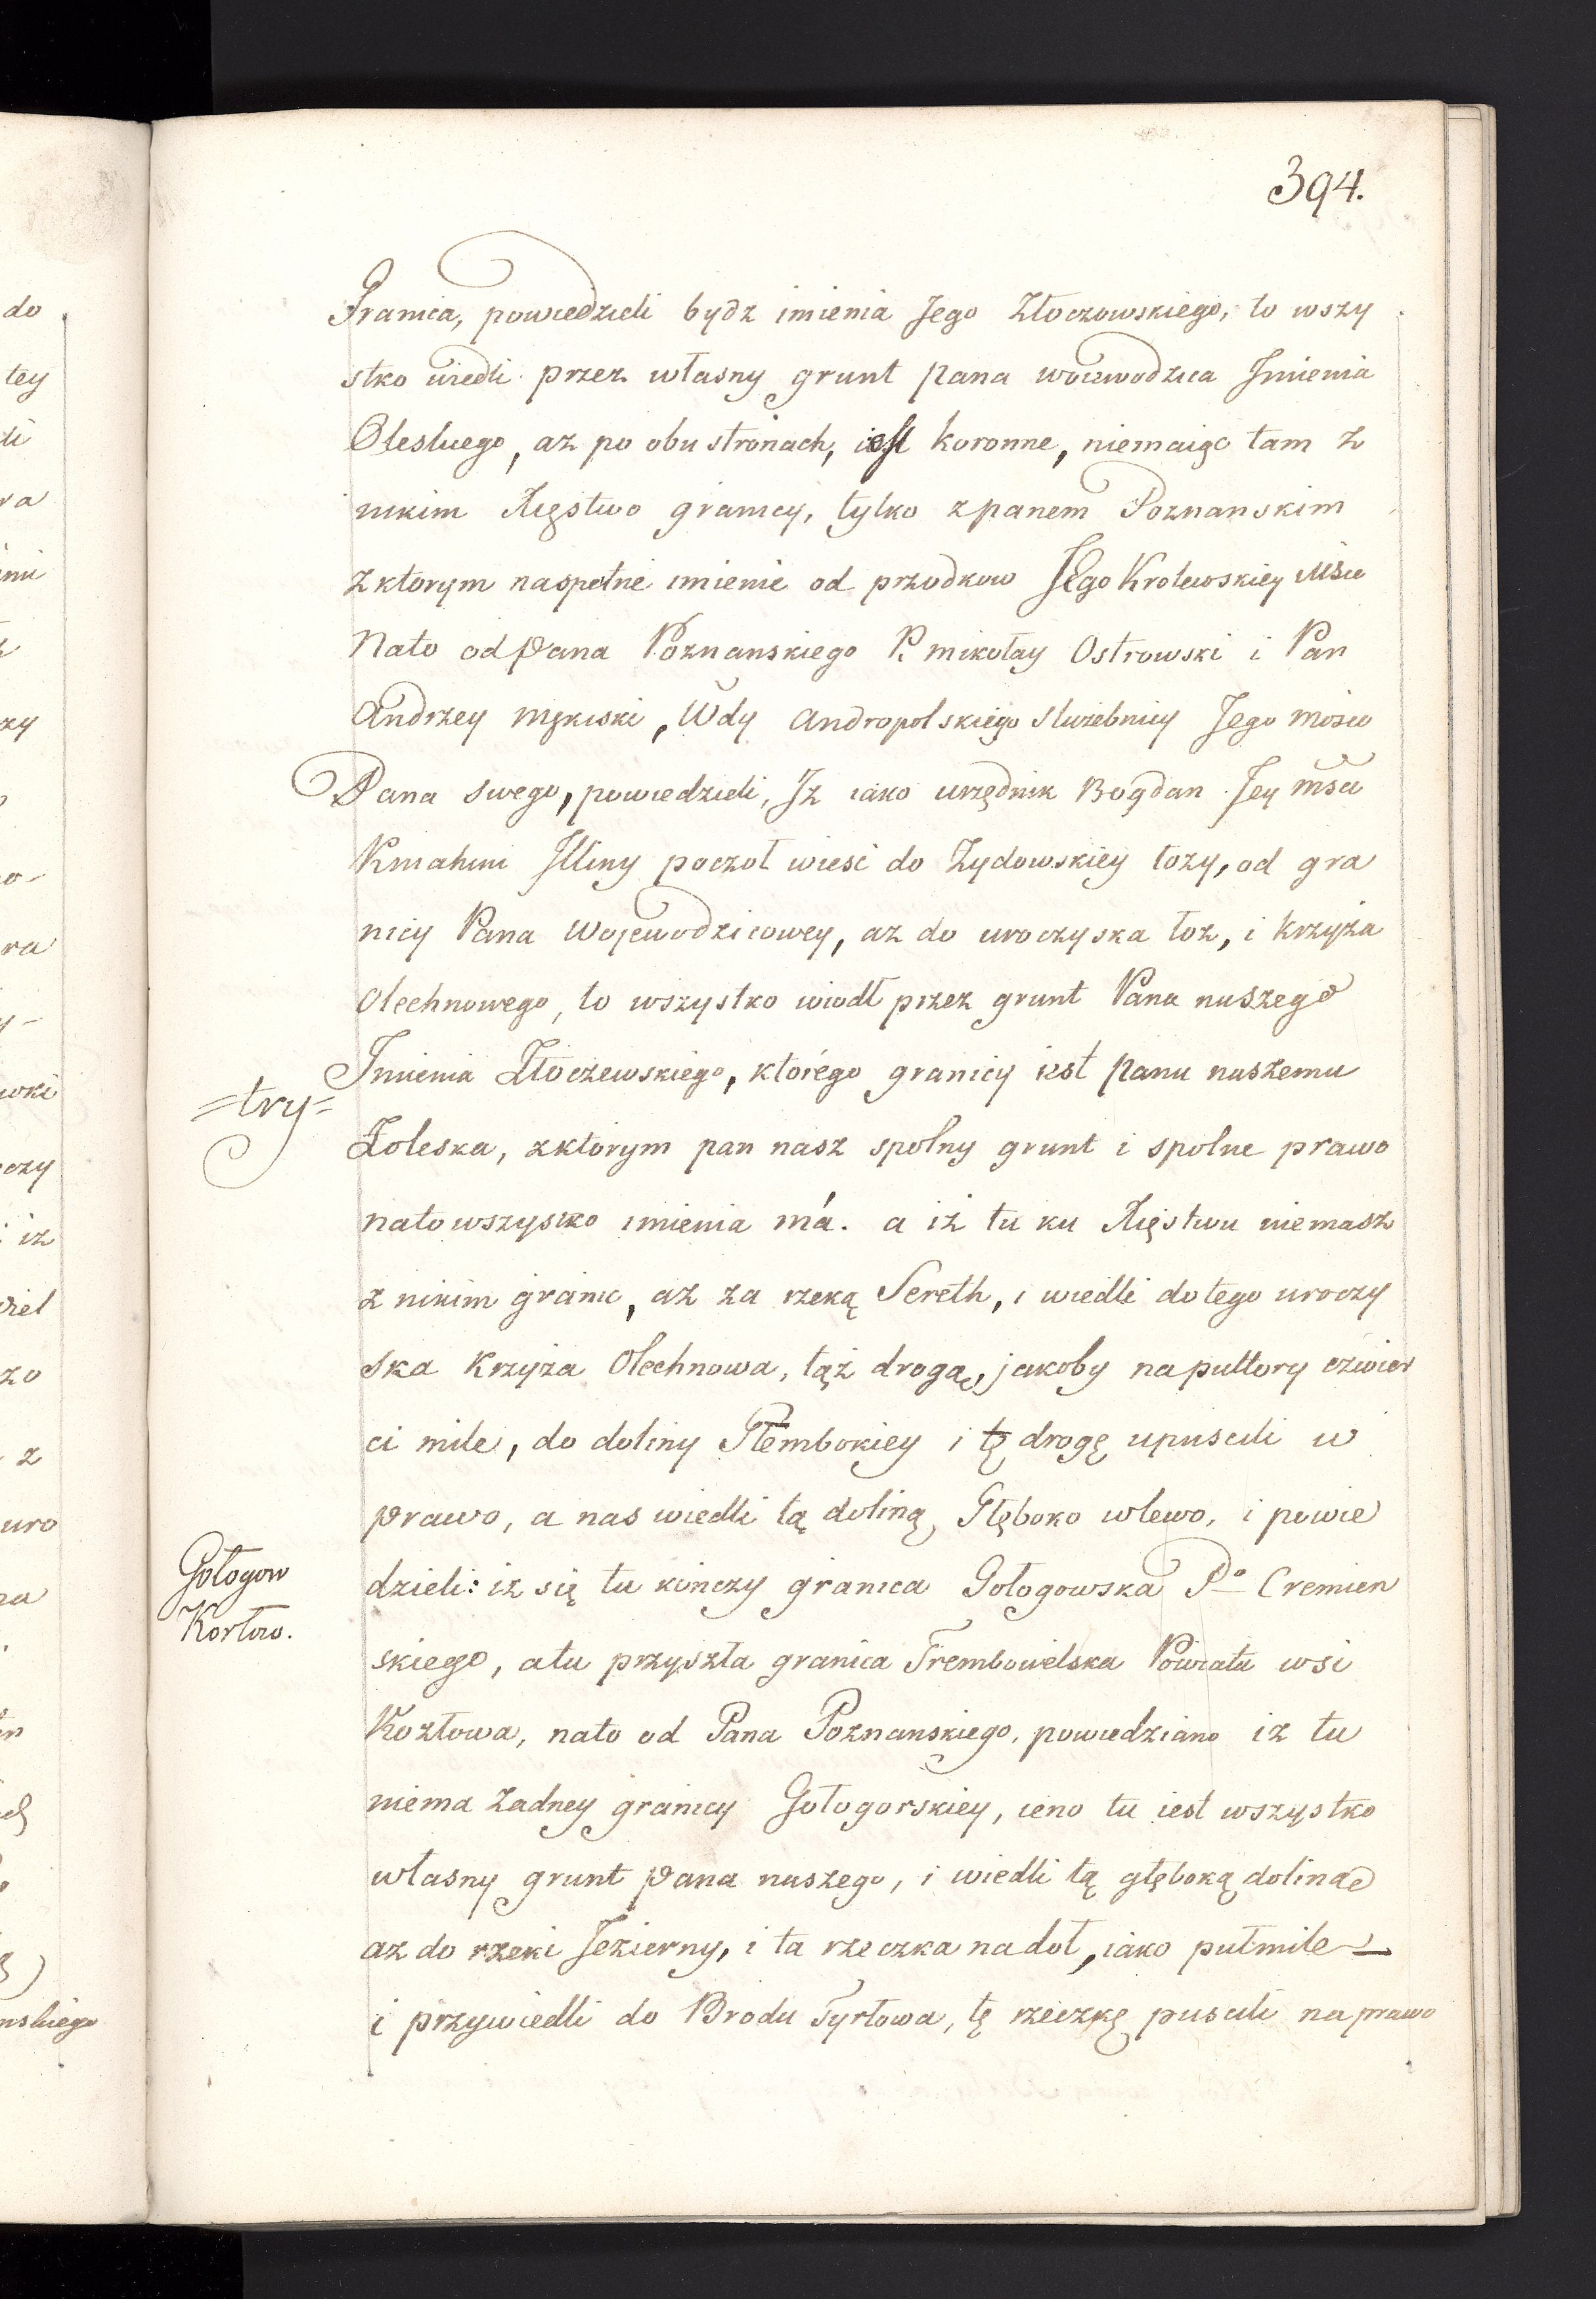 394.
Granica, powiedzieli bydz imienia Jego Złoczowskiego, to wszy
stko wiedli przez własny grunt pana woiewodzica Jmienia
Olesluego, az po obu stronach, iest koronne, niemaiąc tam z
nikim Xięstwo granicy, tylko z panem Poznanskim
z ktorym naspołne imienie od przodkow JEgo Krolewskiey Mści
Nato od Pana Poznanskiego P. mikołay Ostrowski i Pan
Andrzey Mękiski, Wdy Andropolskiego Służebnicy Jego Mości
Pana swego, powiedzieli, Jz iako urzędnik Bogdan Jey mści
Kniahini Jlliny poczoł wieść do Zydowskiey łozy, od gra
nicy Pana Wojewodzicowey, az do uroczyska łoz, i krzyża
Olechnowego, to wszystko wiodł przez grunt Pana naszego
Jmienia Złoczewskiego, którego granicy iest panu naszemu
=try=
Zoleska, z ktorym pan nasz spolny grunt i spolne prawo
nato wszysko imienia má. a iż tu ku Xięstwu niemasz
z nikim granic, az za rzeką Sereth, i wiedli do tego uroczy
ska Krzyża Olechnowa, tąż drogą, jakoby na pułtory czwier
ci mile, do doliny Głembokiey i tę drogę upuscili w
prawo, a nas wiedli tą doliną Głęboko wlewo, i powie
Gołogow
Kozłow.
dzieli: iz się tu kończy granica Gołogowska Po Cremien
skiego, a tu przyszła granica Trembowelska Powiatu wsi
Kozłowa, nato od Pana Poznanskiego, powiedziano iz tu
niema żadney granicy Gołogorskiey, ieno tu iest wszystko
własny grunt pana naszego, i wiedli tą głęboką doliną
az do rzeki Jezierny, i ta rzeczka na doł, iako pułmile
i przywiedli do Brodu Tyrłowa, tę rzeczkę puscili na prawo